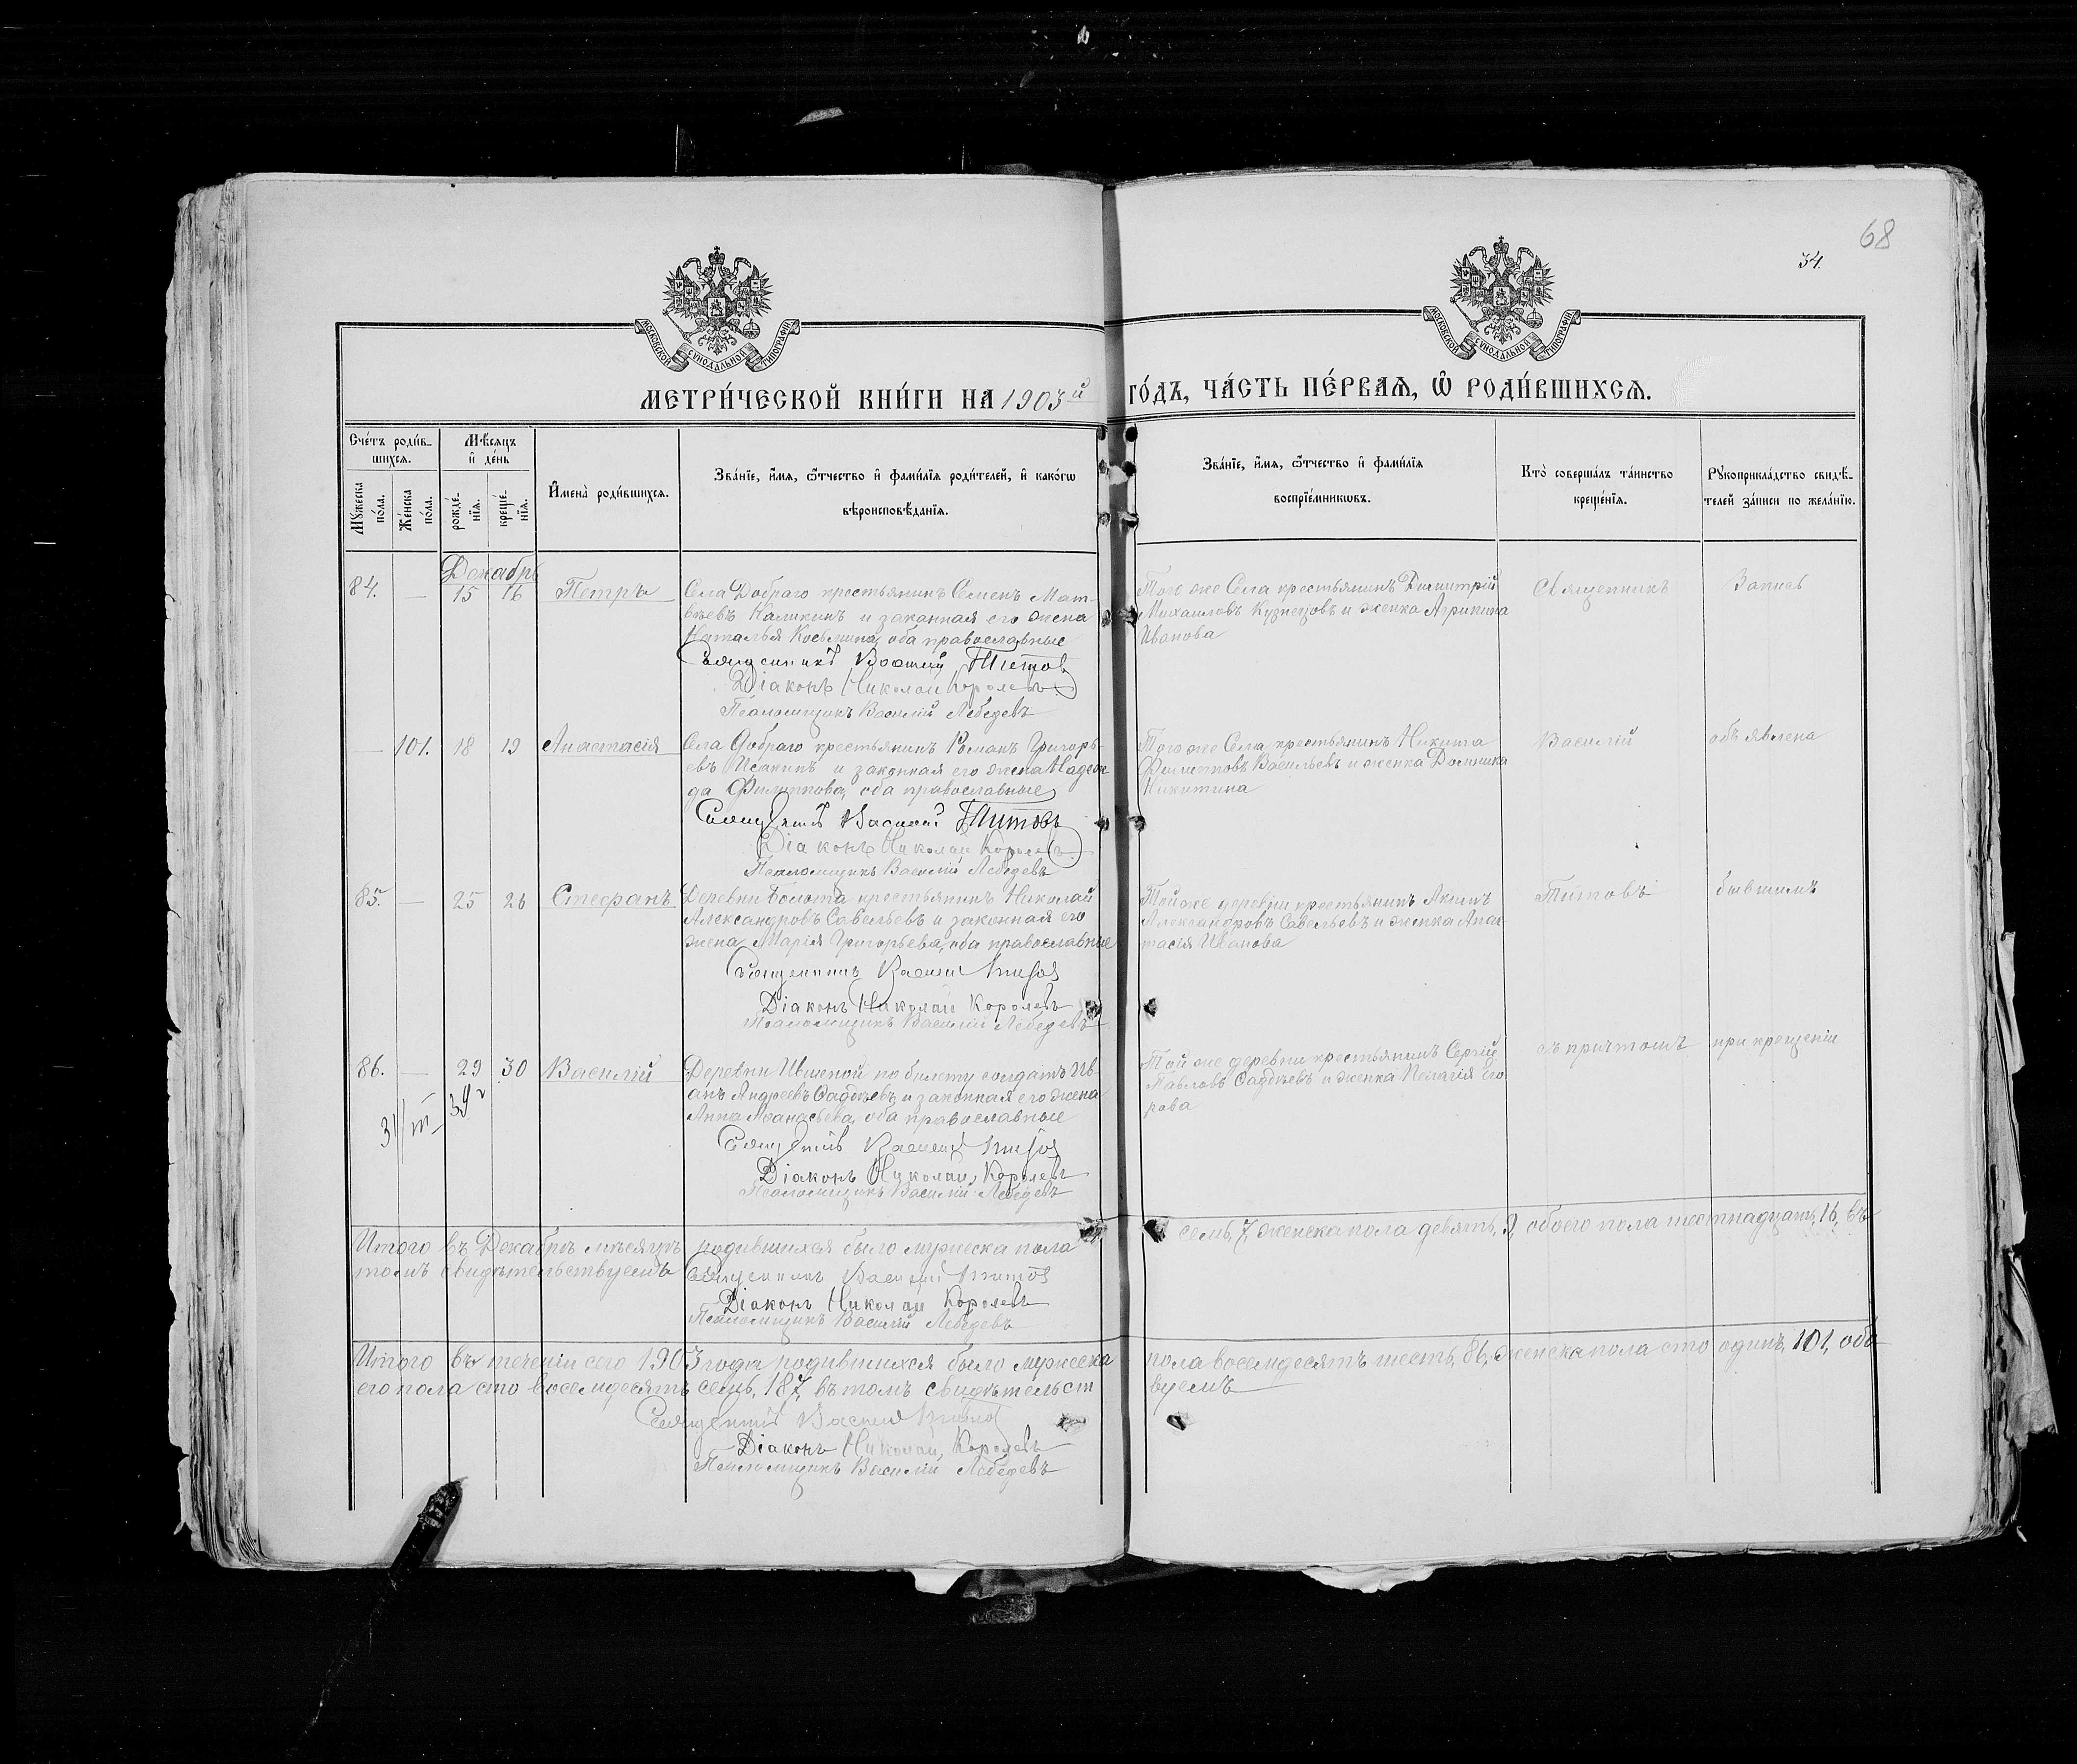 68
34.
МОСКОВСКОЙ СУНОДАЛЬНОЙ ТИПОГРАФІИ
МОСКОВСКОЙ СУНОДАЛЬНОЙ ТИПОГРАФІИ
МЕТРИ́ЧЕСКОЙ КНИ́ГИ НА 1903й ГО́ДЪ, ЧА́СТЬ ПЕ́РВАѦ, Ѡ҆ РОДИ́ВШИХСѦ.
Сче́тъ роди́в-
шихсѧ.
Мꙋ́жеска по́ла.
Же́нска по́ла.
Мѣ́сѧцъ
и҆ де́нь
рожде́-
нїѧ.
креще́-
нїѧ.
И҆мена̀ роди́вшихсѧ.
Зва́нїе, и҆́мѧ, ѻ҆́тчество и҆ фами́лїѧ роди́телей, и҆ како́гѡ
вѣроисповѣ́данїѧ.
Зва́нїе, и҆́мѧ, ѻ҆́тчество и҆ фами́лїѧ
воспрїе́мникѡвъ.
Кто̀ соверша́лъ та́инство
креще́нїѧ.
Рꙋкоприкла́дство свидѣ́-
телей за́писи по жела́нїю.
Декабрь
84. — 15 16 Петръ
Села Добраго крестьянинъ Семенъ Мат-
вѣевъ Каликинъ и законная его жена
Наталья Косьмина, оба православные
Священникъ Василій Титовъ
Діаконъ Николай Королевъ
Псаломщикъ Василій Лебедевъ
Того же Села крестьянинъ Димитрій
Михаиловъ Кузнецовъ и женка Агрипина
Иванова
Священникъ
Запись
— 101. 18 19 Анастасія
Села Добраго крестьянинъ Романъ Григорь-
евъ Исакинъ и законная его жена Надеж-
да Филиппова, оба православные
Священникъ Василій Титовъ
Діаконъ Николай Королевъ
Псаломщикъ Василій Лебедевъ
Того же Села крестьянинъ Никита
Филипповъ Васильевъ и женка Домника
Никитина
Василій
объявлена
85. — 25 26 Стефанъ
Деревни Болота крестьянинъ Николай
Александровъ Савельевъ и законная его
жена Марія Григорьева, оба православные
Священникъ Василій Титовъ
Діаконъ Николай Королевъ
Псаломщикъ Василій Лебедевъ
Той же деревни крестьянинъ Акимъ
Александровъ Савельевъ и женка Анас-
тасія Иванова
Титовъ
бывшимъ
86. — 29 30 Василій
Деревни Ившеной по билету солдатъ Ив-
анъ Андреевъ Фадѣевъ и законная его жена
Анна Аѳанасьева, оба православные
Священникъ Василій Титовъ
Діаконъ Николай Королевъ
Псаломщикъ Василій Лебедевъ
Той же деревни крестьянинъ Сергій
Павловъ Фадѣевъ и женка Пелагія Его-
рова
съ причтомъ
при крещеніи
Итого въ Декабрѣ мѣсяцѣ родившихся было мужеска пола семь, 7, женска пола девять, 9, обоего пола шестнадцать, 16, въ
томъ свидѣтельствуемъ
Священникъ Василій Титовъ
Діаконъ Николай Королевъ
Псаломщикъ Василій Лебедевъ
Итого въ теченіи сего 1903 года родившихся было мужеска пола восемдесятъ шесть, 86, женска пола сто одинъ, 101, обо-
его пола сто восемдесятъ семь, 187, въ томъ свидѣтельст-
вуемъ
Священникъ Василій Титовъ
Діаконъ Николай Королевъ
Псаломщикъ Василій Лебедевъ